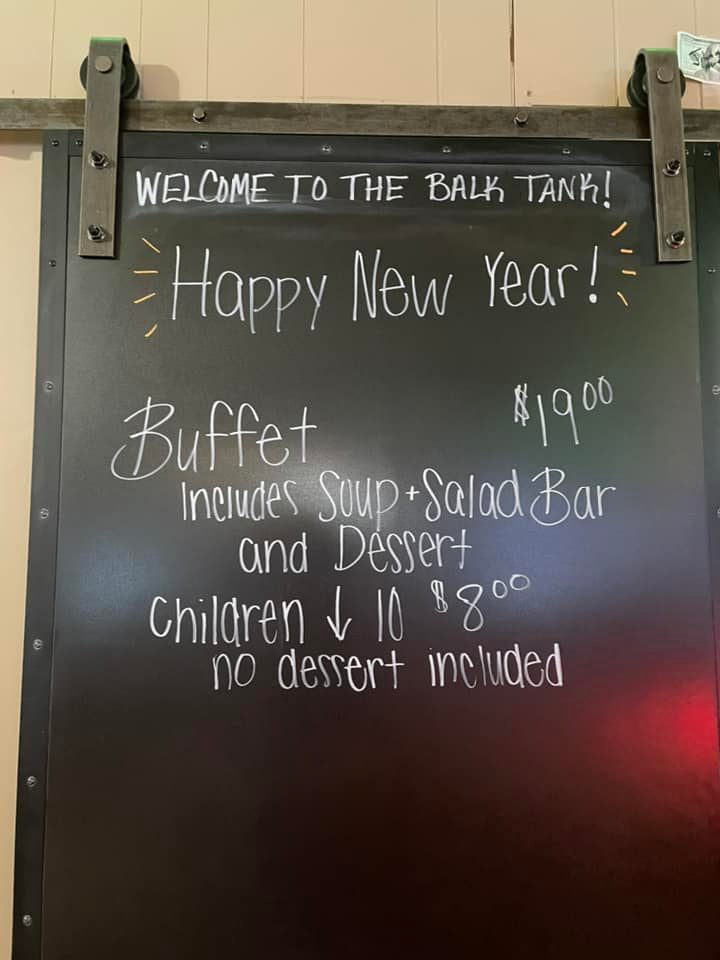 WELCOME TO THE BALK TANK!
Happy New Year!
Buffet $19.00
Includes Soup + Salad Bar
and Dessert
Children ↓ 10 $8.00
no dessert included